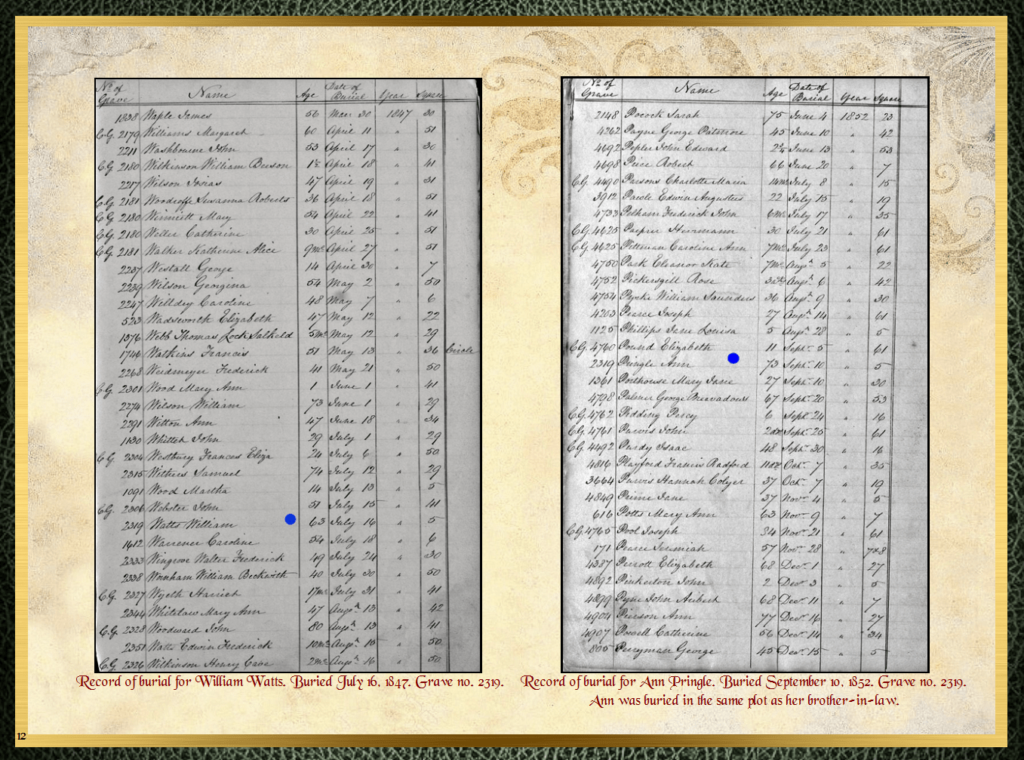 No. of Grave Name Age Date of Burial Year Square
1838 Waple James 56 Mar 30 1847 30
C.G. 2179 Williams Margaret 60 April 11 " 51
2211 Washbourne John 53 April 17 " 30
C.G. 2180 Wilkinson William Buson April 18 " 41
2217 Wilson 47 April 19 " 31
C.G. 2181 Woodcoffe Susanna Roberts 36 April 18 " 51
C.G. 2180 Winnett Mary 54 April 22 " 41
C.G. 2180 Catherine 30 April 25 " 51
C.G. 2181 Walker Katherine Alice 9 April 27 " 51
2237 Westall George 14 April 30 " 7
2239 Wilson Georgina 54 May 2 " 50
2247 Welldey Caroline 48 May 7 " 6
523 Wadsworth Elizabeth 47 May 12 " 22
1376 Webb Thomas Lock May 12 " 29
1746 Watkins Francis 51 May 13 " 36 Circle
2268 Weidemeyer Frederick 41 May 21 " 50
C.G. 2301 Wood Mary Ann 1 June 1 " 41
2274 Wilson William 73 June 1 " 29
2291 Witton Ann 47 June 18 " 34
1130 Whitted John 29 July 1 " 29
C.G. 2304 Francis Eliza 24 July 6 " 50
2315 Withers Samuel 74 July 12 " 29
1091 Wood Martha 14 July 13 " 5
C.G. 2306 Webster John 51 July 15 " 41
2319 Watts William 63 July 16 " 5
1612 Warrener Caroline 54 July 18 " 6
2333 Wingrove Walter Frederick 49 July 24 " 30
2338 Wornham William Beckwith 40 July 30 " 50
C.G. 2327 Wyeth Harriet July 31 " 41
2344 Whitelaw Mary Ann 47 Augt. 13 " 42
C.G. 2328 Woodward John 80 Augt. 13 " 41
2351 Watts Edwin Frederick Augt. 15 " 50
C.G. 2326 Wilkinson Henry Cave Augt. 16 " 50
Record of burial for William Watts. Buried July 16, 1847. Grave no. 2319.
No. of Grave Name Age Date of Burial Year Square
2148 Pocock Sarah 75 June 4 1852 23
4262 Payne George 45 June 10 " 42
4692 Pepler John Edward June 13 " 53
4698 Peice Robert 66 June 20 " 7
C.G. 4490 Parsons Charlotte Maria July 8 " 15
3912 Edwin Augustus 22 July 15 " 19
4733 Pelham Frederick John July 17 " 35
C.G. 4626 Herrmann 30 July 21 " 61
C.G. 4625 Pittman Caroline Ann July 23 " 61
4750 Park Eleanor Kate Augt. 5 " 22
4752 Pickersgill Rose Augt. 6 " 42
4754 William Saunders 36 Augt. 9 " 30
4263 Pearce Joseph 27 Augt. 14 " 61
1125 Phillips Jane Louisa 5 Augt. 28 " 5
C.G. 4760 Elizabeth 11 Sept. 5 " 61
2319 Pringle Ann 73 Sept. 10 " 5
1361 Porthouse Mary Jane 27 Sept. 10 " 30
4798 Palmer George 67 Sept. 20 " 53
C.G. 4762 Pedding Percy 6 Sept. 24 " 16
C.G. 4761 Parvis John Sept. 25 " 61
C.G. 4492 Pardy Isaac 48 Sept. 30 " 16
4816 Playford Francis Radford Oct. 7 " 35
3664 Purvis Hannah Colyer 37 Oct. 7 " 19
4849 Prime Jane 37 Nov. 4 " 5
616 Potts Mary Ann 63 Nov. 9 " 7
C.G. 4765 Pool Joseph 34 Nov. 21 " 61
171 Pearce Jeremiah 57 Nov. 28 " 7&8
4387 Perrott Elizabeth 68 Dec. 1 " 27
4892 Pinkerton John 2 Dec. 3 " 5
4899 Pyne John 68 Dec. 11 " 7
4904 Pierson Ann 77 Dec. 16 " 27
4907 Powell Catherine 56 Dec. 14 " 34
805 Perryman George 45 Dec. 15 " 5
Record of burial for Ann Pringle. Buried September 10, 1852. Grave no. 2319.
Ann was buried in the same plot as her brother-in-law.
12